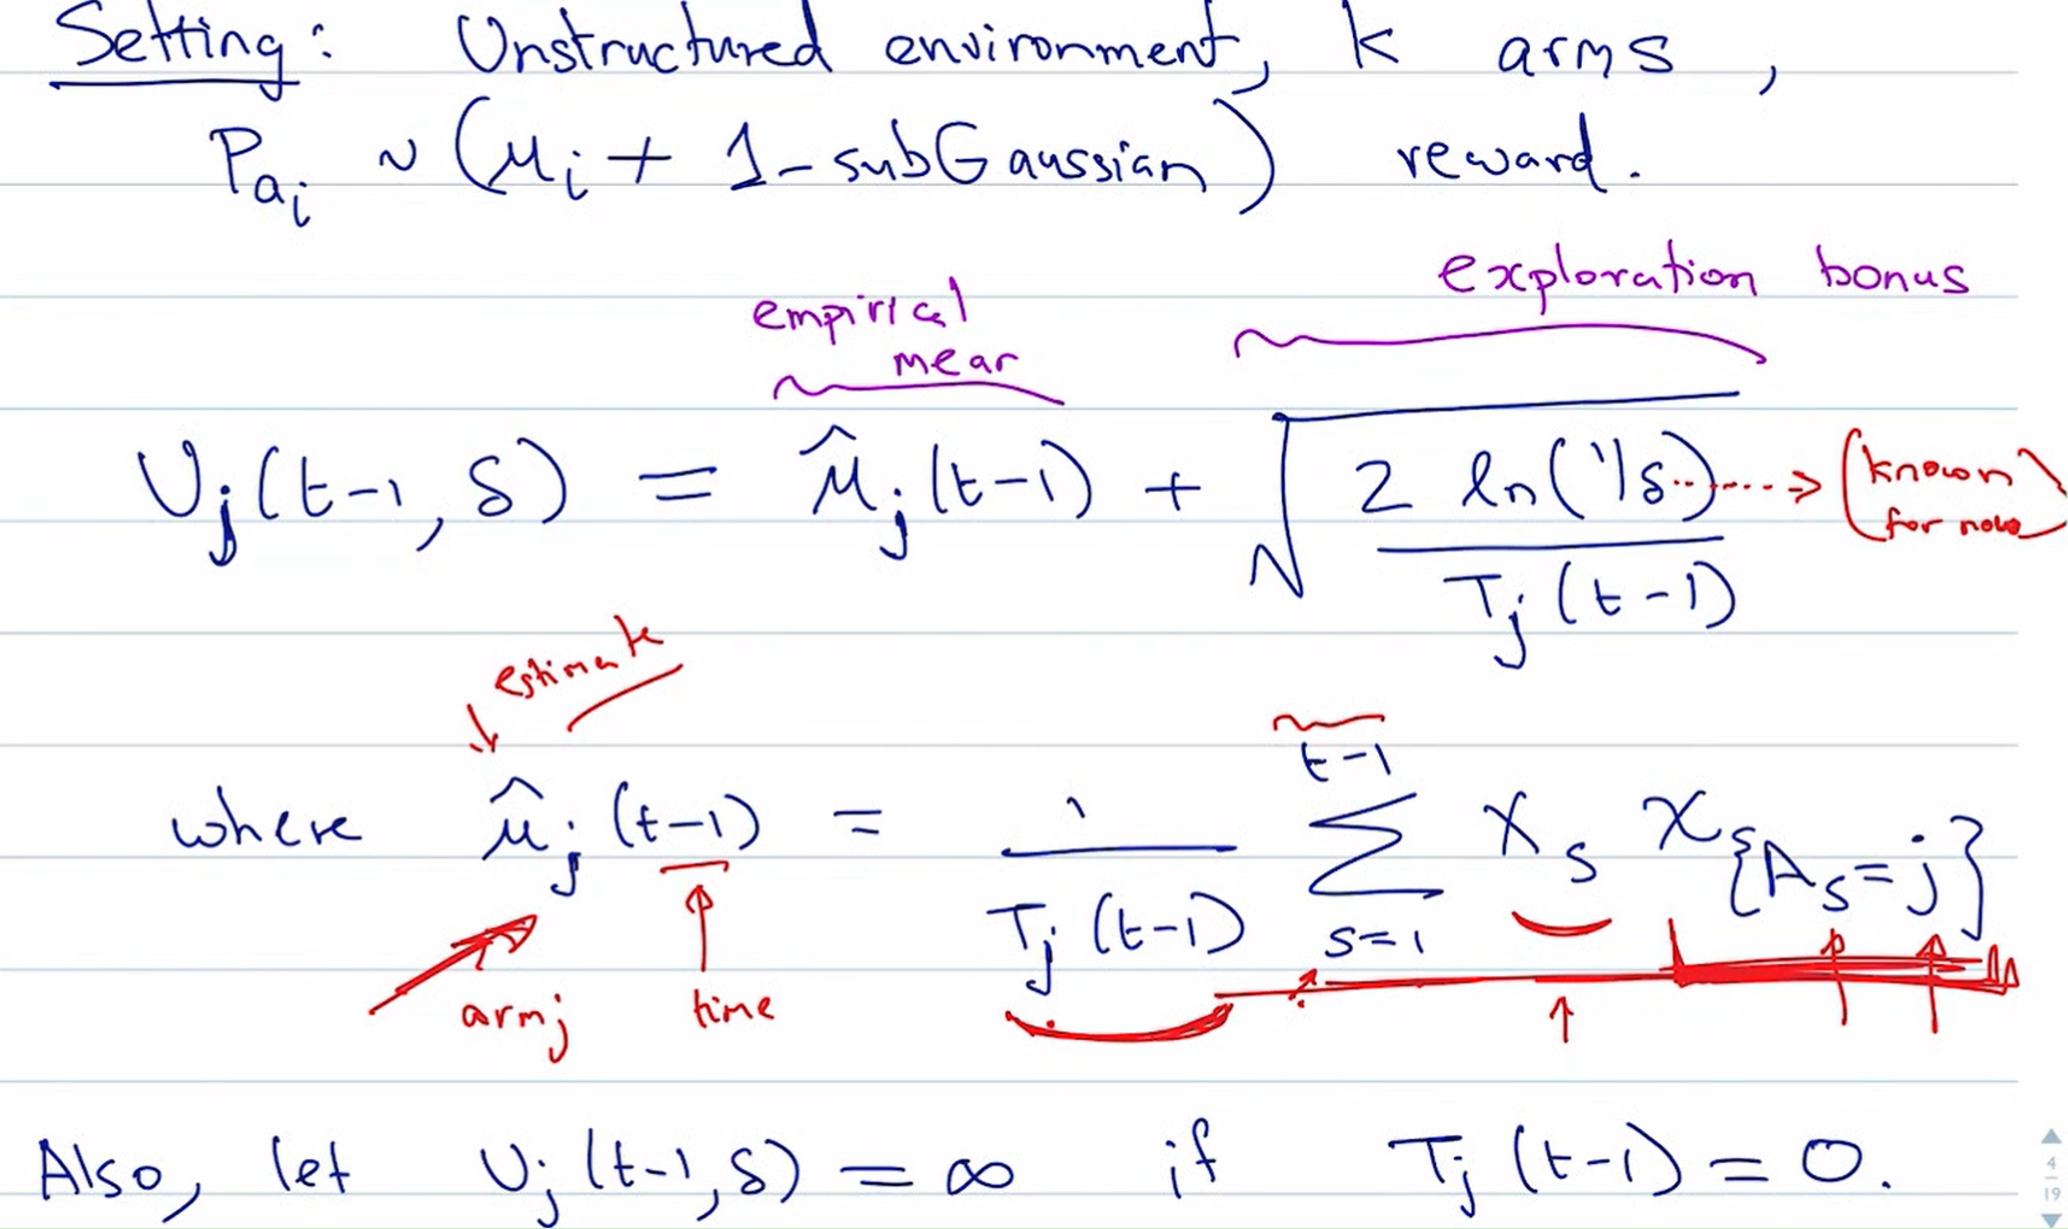 Setting: Unstructured environment, k arms,
P_{a_i} ~ (μ_i + 1-subGaussian) reward.
exploration bonus
empirical
mean
U_j(t-1, δ) = μ̂_j(t-1) + √(2 ln(1/δ) / T_j(t-1)) ⇢ (known
for now)
estimate
where μ̂_j(t-1) = 1/T_j(t-1) ∑_{s=1}^{t-1} X_s χ_{{A_s=j}}
arm j time
Also, let U_j(t-1, δ) = ∞ if T_j(t-1) = 0.
4
19